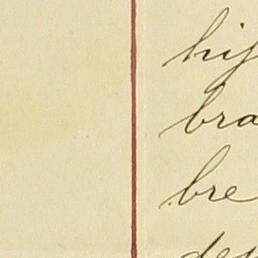 hi
bra
bre
de